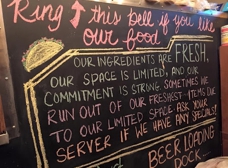 Ring ↑ this bell if you like
our food.
OUR INGREDIENTS ARE FRESH,
OUR SPACE IS LIMITED, AND OUR
COMMITMENT IS STRONG. SOMETIMES WE
RUN OUT OF OUR FRESHEST ITEMS DUE
TO OUR LIMITED SPACE. ASK YOUR
SERVER IF WE HAVE ANY SPECIALS!
BEER LOADING
DOCK